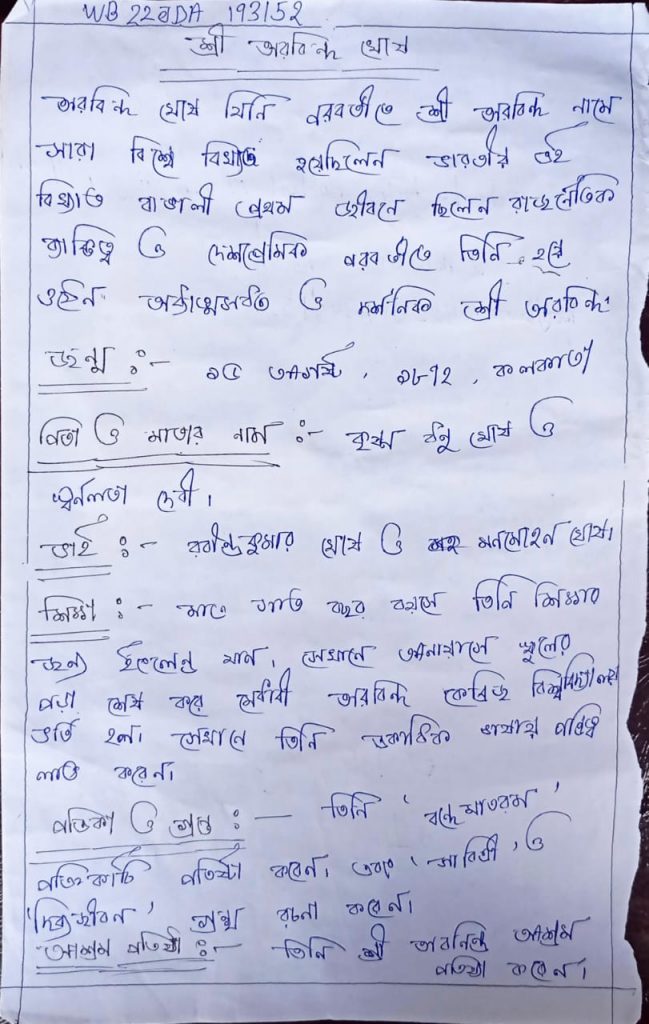 WB22BDA 193152
শ্রী অরবিন্দ ঘোষ
অরবিন্দ ঘোষ যিনি পরবর্তীতে শ্রী অরবিন্দ নামে
সারা বিশ্বে বিখ্যাত হয়েছিলেন ভারতীয় এই
বিখ্যাত বাঙালী প্রথম জীবনে ছিলেন রাজনৈতিক
ব্যাক্তিত্ব ও দেশপ্রেমিক পরবর্তীতে তিনি হয়ে
ওঠেন দার্শনিক শ্রী অরবিন্দ
জন্ম :- ১৫ আগস্ট, ১৮৭২, কলকাতা
পিতা ও মাতার নাম :- কৃষ্ণ ধনু ঘোষ ও
স্বর্নলতা দেবী।
ভাই :- বারীন্দ্রকুমার ঘোষ ও মনমোহন ঘোষ।
শিক্ষা :- মাত্র সাত বছর বয়সে তিনি শিক্ষার
জন্য ইংলেন্ড যান, সেখানে অনায়াসে স্কুলের
পড়া শেষ করে মেধাবী অরবিন্দ কেমব্রিজ বিশ্ববিদ্যালয়
ভর্তি হন। সেখানে তিনি একাধিক ভাষায় পান্ডিত্ব
লাভ করেন।
পত্রিকা ও গ্রন্থ :- তিনি 'বন্দেমাতরম'
পত্রিকাটি পতিষ্ঠা করেন। এবং 'সাবিত্রী' ও
'দিব্যজীবন' গ্রন্থ রচনা করেন।
আশ্রম পতিষ্ঠা :- তিনি শ্রী অরবিন্দ আশ্রম
পতিষ্ঠা করেন।